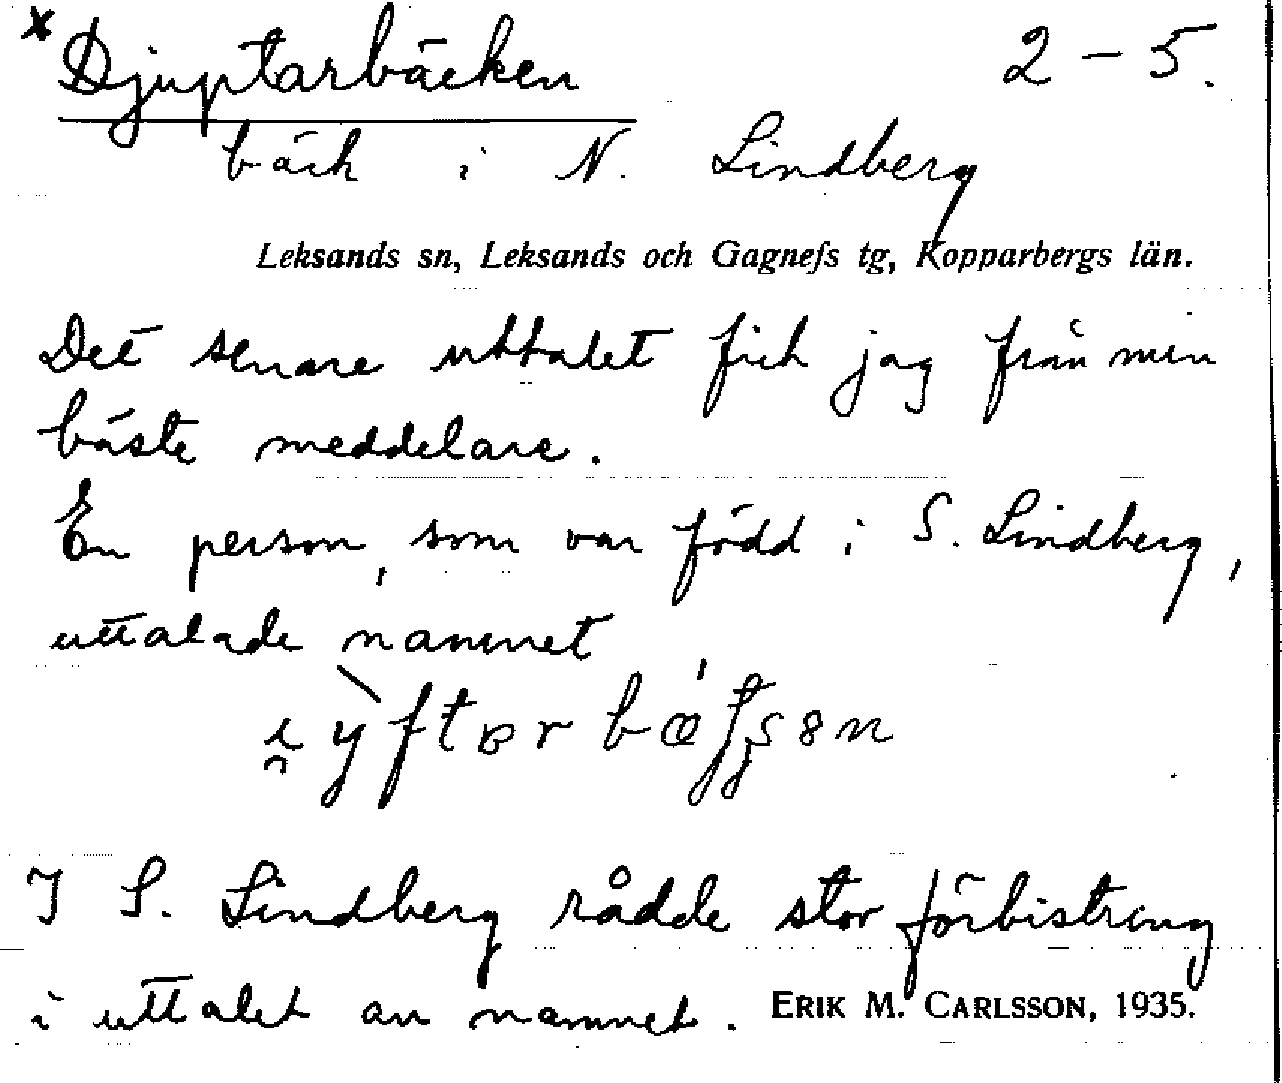 * Djuptarbäcken 2-5.
bäck i N. Lindberg
Leksands sn, Leksands och Gagnefs tg, Kopparbergs län.
Det senare uttalet fick jag från min
bäste meddelare.
En person, som var född i S. Lindberg,
uttalade namnet
I S. Lindberg rådde stor förbistring
i uttalet av namnet. ERIK M. CARLSSON, 1935.